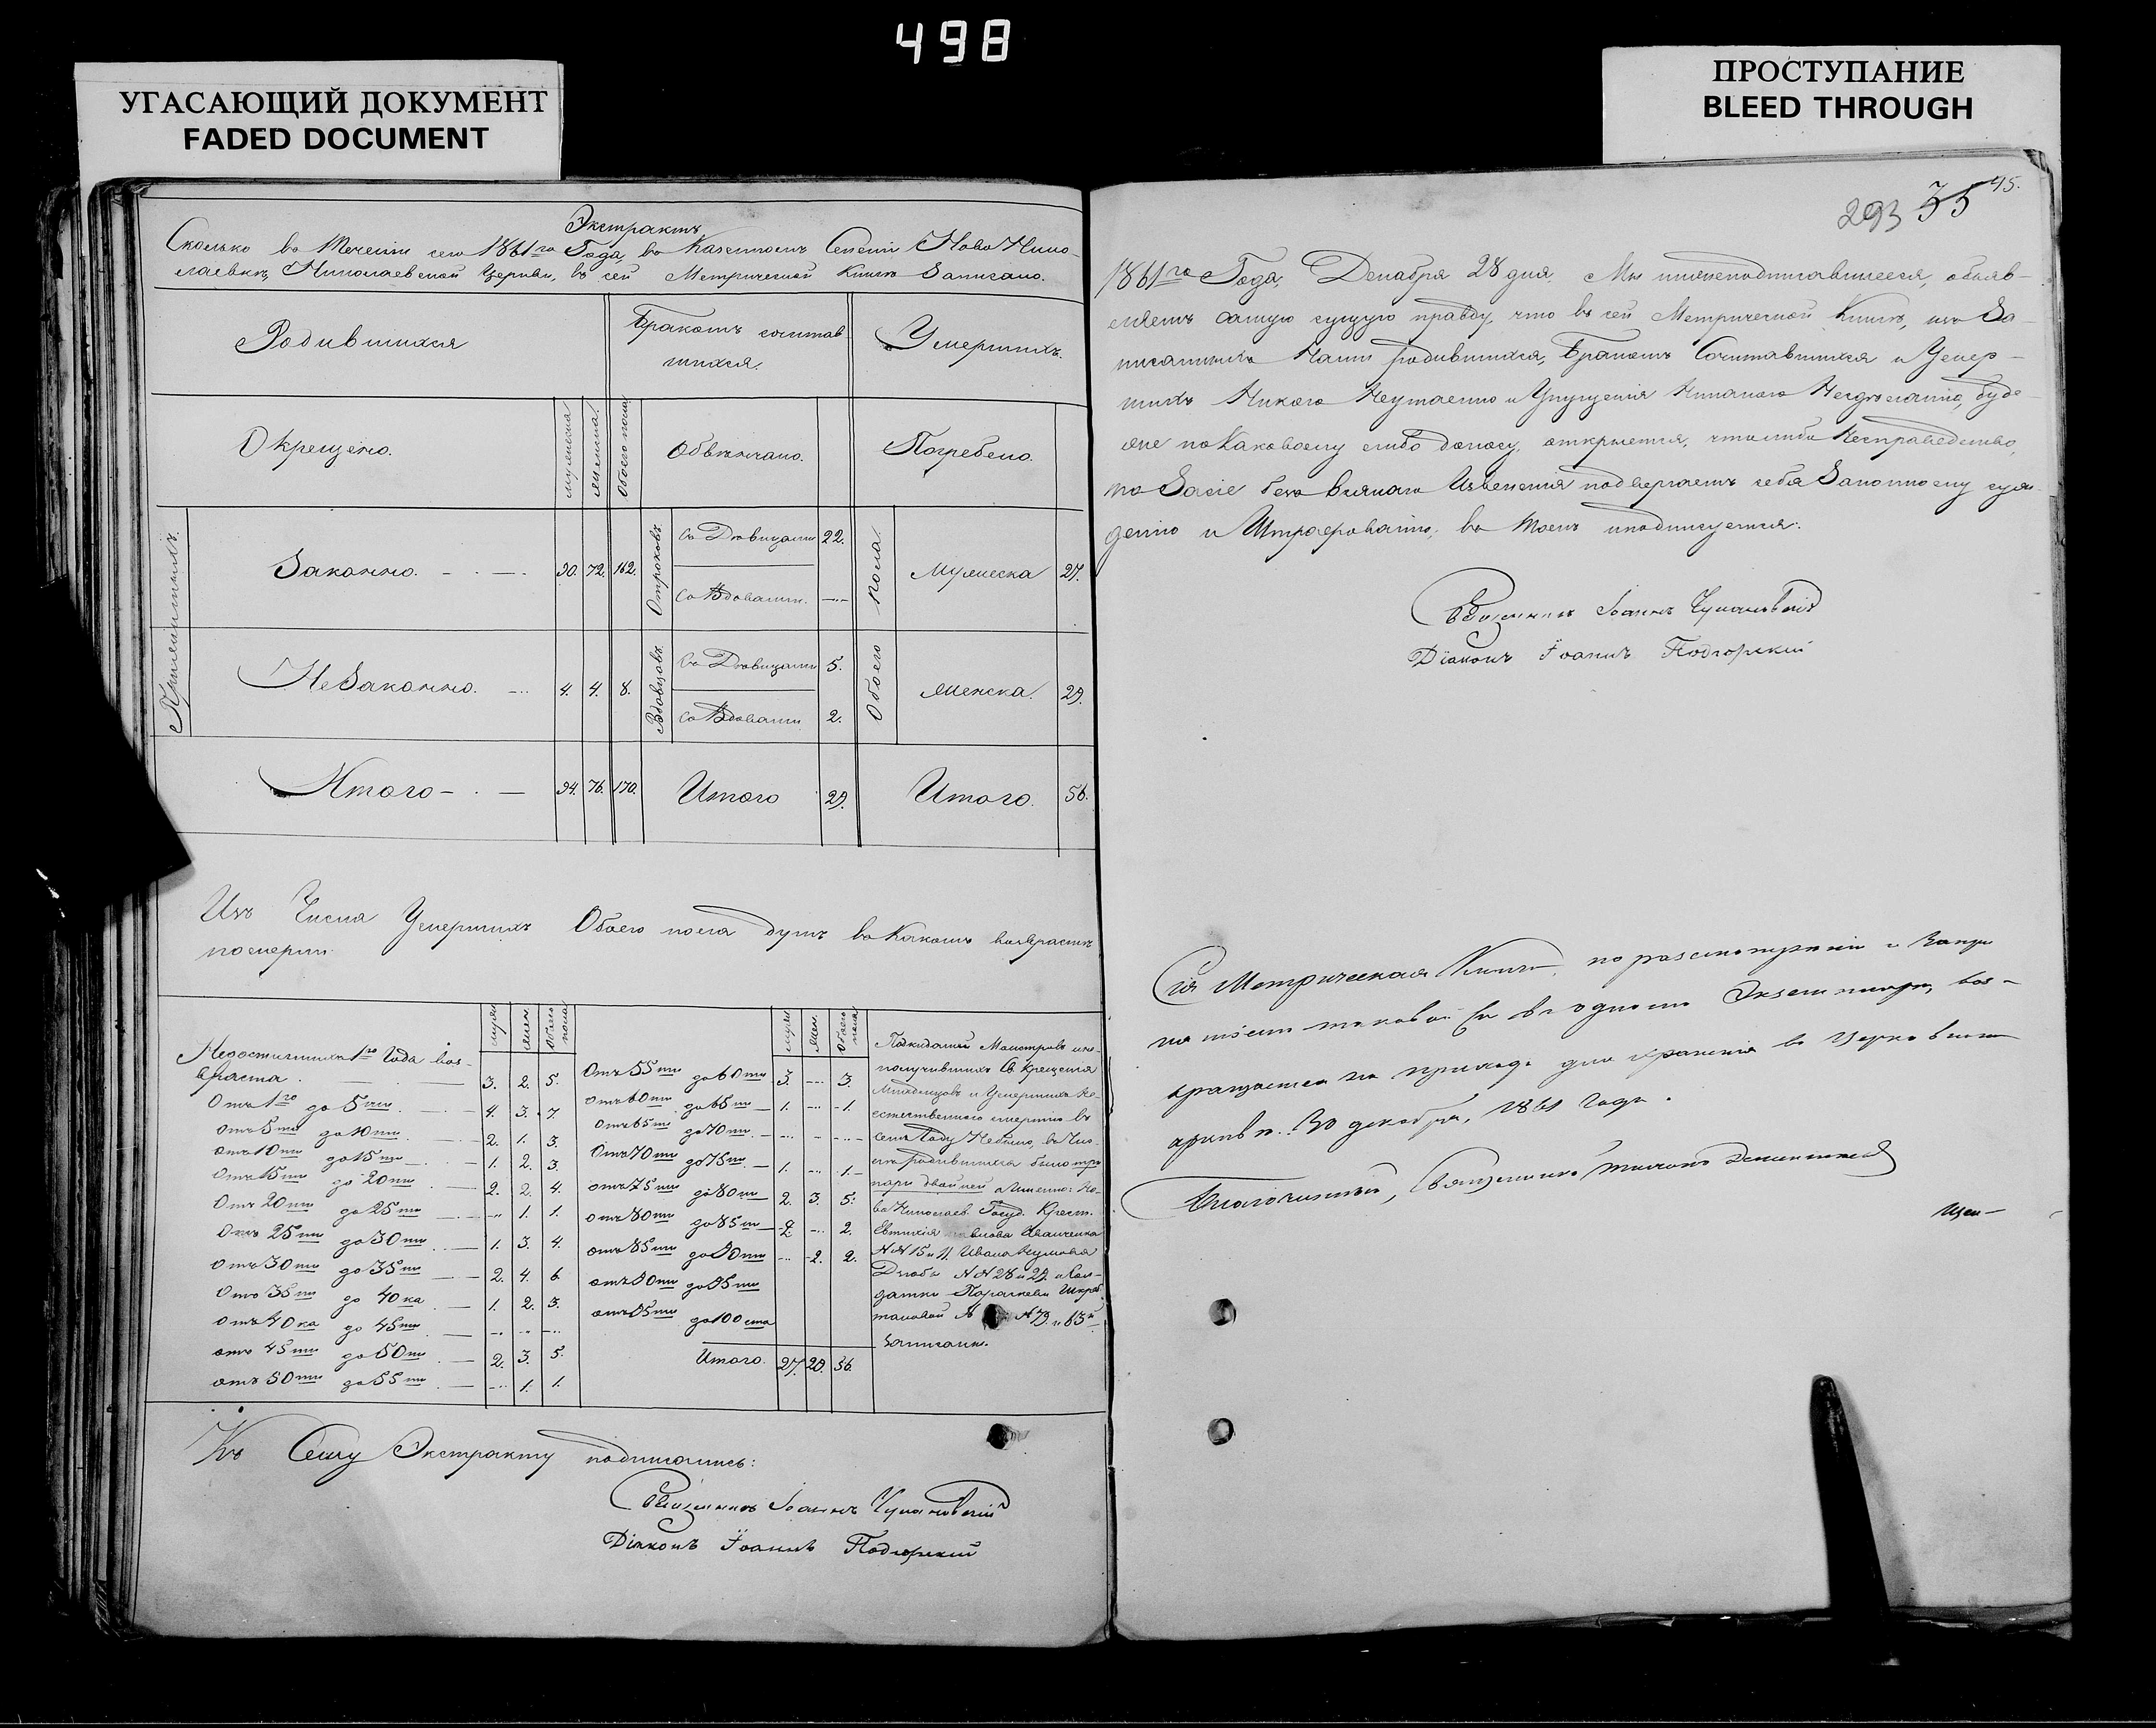 498
УГАСАЮЩИЙ ДОКУМЕНТ
FADED DOCUMENT
ПРОСТУПАНИЕ
BLEED THROUGH
Экстрактъ
Сколько въ Теченіи сего 1861го Года, въ Казенномъ Селеніи Ново Нико-
лаевкѣ, Николаевской Церкви, въ сей Метрической Книгѣ Записано.
Родившихся
Бракомъ сочетав
шихся.
Умершихъ.
Окрещено.
мужеска
женска
Обоего пола
Обвѣнчано.
Погребено.
Законно. 90. 72. 162.
Отроковъ.
съ Дѣвицами 22.
со Вдовами. —
Обоего пола.
Мужеска 27.
НеЗаконно. 4. 4. 8.
Вдовцовъ.
съ Дѣвицами 5.
со Вдовами 2.
женска. 29.
Итого 94. 76. 170.
Итого 29.
Итого. 56.
Изъ Числа Умершихъ Обоего пола въ Какомъ возрастѣ
померли
муж. жен. Обоего пола
Недостигшихъ 1го Года воз-
враста. 3. 2. 5.
Отъ 1го до 5ти 4. 3. 7
отъ 5ти до 10ти 2. 1. 3.
отъ 10ти до 15ти 1. 2. 3.
отъ 15ти до 20ти 2. 2. 4.
Отъ 20ти до 25ти — 1. 1.
Отъ 25ти до 30ти 1. 3. 4.
отъ 30ти до 35ти 2. 4. 6
Отъ 35ти до 40ка 1. 2. 3.
отъ 40ка до 45ти — — —
отъ 45ти до 50ти 2. 3. 5.
отъ 50ти до 55ти — 1. 1.
муж. жен. Обоего пола
Отъ 55ти до 60ти 3. — 3.
отъ 60ти до 65ти 1. — 1.
отъ 65ти до 70ти — — —
Отъ 70ти до 75ти 1. — 1.
отъ 75ти до 80ти 2. 3. 5.
отъ 80ти до 85ти 2. — 2.
отъ 85ти до 90ти — 2. 2.
отъ 90ти до 95ти
отъ 95ти до 100ста
Итого. 27. 29. 56.
Подкидышей Монстровъ
получившихъ Св. Крещенія
Младенцовъ и Умершихъ не
естественною смертію въ
семъ Году Небыло, въ Чис-
лѣ родившихся было три
пары двойней Именно: Но-
во Николаев. Госуд. Крест.
Евтихія Иванченка
№№ 15 и 11. Ивана
№№ 28 и 29. и Сол-
датки Параскевы
№ 73. и 63й
Записаны.
Къ Сему Экстракту подписались:
Священникъ Іоаннъ
Діаконъ Іоаннъ Подгорскій
293 35 45.
1861го Года, Декабря 28 дня. Мы нижеподписавшіеся, объяв-
ляемъ самую сущую правду, что въ сей Метрической Книгѣ, изъ За-
писанныхъ Нами родившихся, Бракомъ Сочетавшихся и Умер-
шихъ Никого Неутаенно и Упущенія Никакого Неудѣлано, буде
оне по Каковому либо доносу, откроется, что либо Несправедливо,
то Засіе безъ всякаго Извененія подвергаемъ себя Законному суж-
денію и Штрафованію, въ томъ и подписуемся:
Священникъ Іоаннъ
Діаконъ Іоаннъ Подгорскій
Сія Метрическая Книга, по разсмотреніи и
таковой съ въ одномъ Экземпляре, воз-
вращается въ приходъ для храненія въ Церковномъ
архивѣ. 30 декабря, 1861 года.
Благочинный, Священникъ